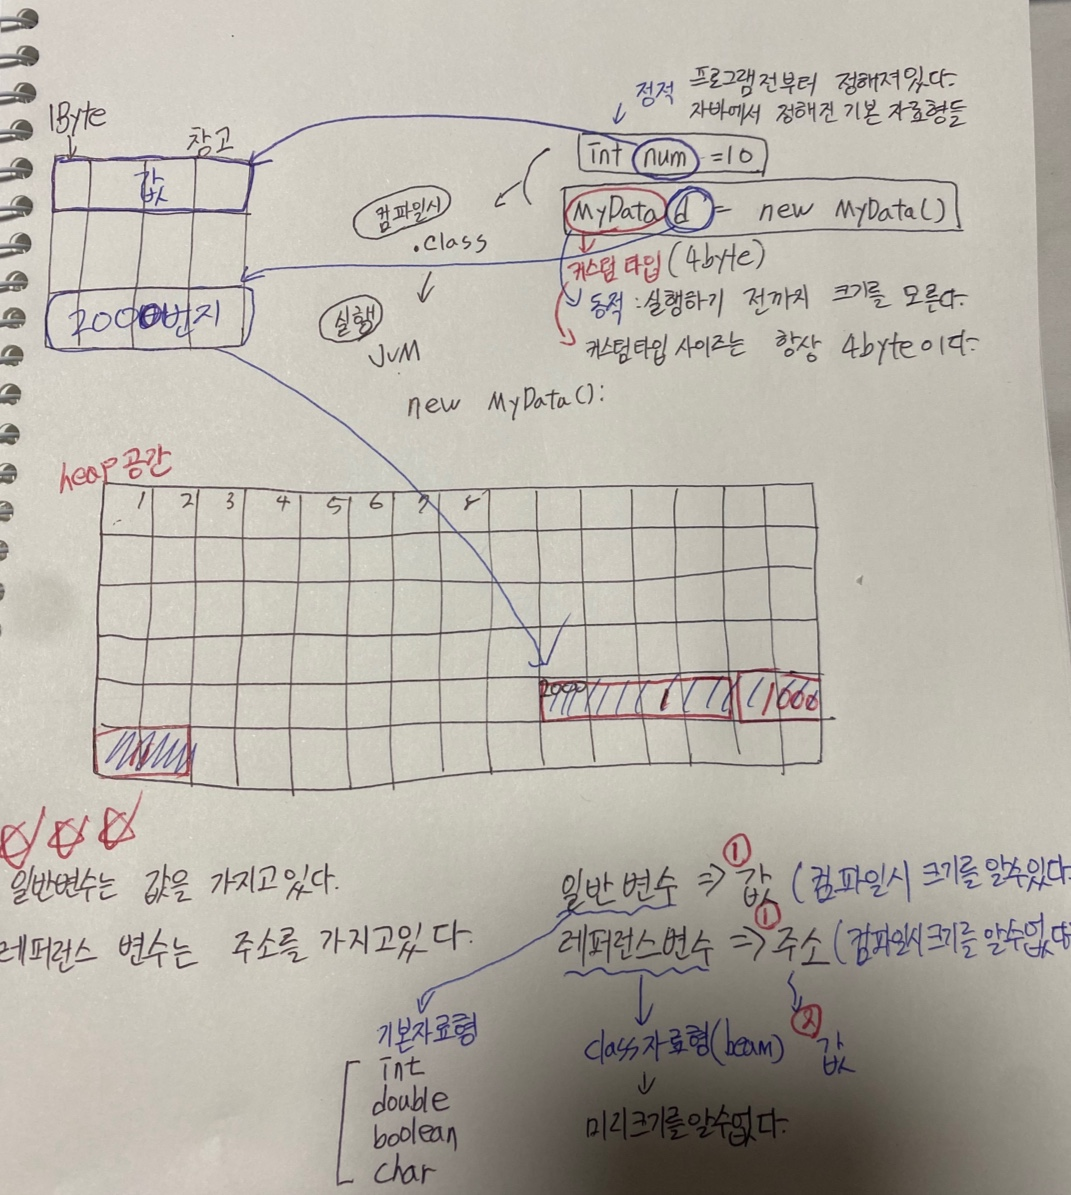 정적 프로그램전부터 정해져있다.
자바에서 정해진 기본 자료형들
1Byte
참고
값
int num = 10
MyData d = new MyData()
컴파일시
.class
커스텀 타입 (4byte)
동적 : 실행하기 전까지 크기를 모른다.
커스텀타입 사이즈는 항상 4byte이다.
2000번지
실행
JVM
new MyData():
heap 공간
1 2 3 4 5 6 7 8
2000 1 1000
일반변수는 값을 가지고있다.
레퍼런스 변수는 주소를 가지고있다.
일반 변수 => ① 값 (컴파일시 크기를 알수있다
레퍼런스변수 => ① 주소 (컴파일시크기를 알수없다
② 값
기본자료형
int
double
boolean
char
class자료형(beam)
미리크기를알수없다.